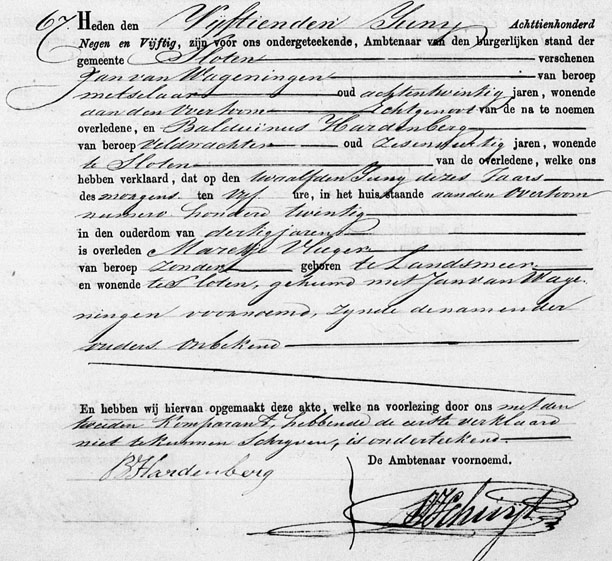 67 Heden den Vijftienden Juny Achttienhonderd
Negen en Vijftig, zijn voor ons ondergeteekende, Ambtenaar van den burgerlijken stand der
gemeente Sloten verschenen
Jan van Wageningen van beroep
metselaar oud achtentwintig jaren, wonende
aan den Overtoom Echtgenoot van de na te noemen
overledene, en Balduinus Hardenberg
van beroep veldwachter oud zesenveertig jaren, wonende
te Sloten van de overledene, welke ons
hebben verklaard, dat op den twaalfden Juny dezes Jaars
des morgens ten vijf ure, in het huis staande aanden Overtoom
numero honderd twintig
in den ouderdom van dertig jaren
is overleden Maretje Vlieger
van beroep Zonder geboren te Landsmeer
en wonende te Sloten, gehuwd met Jan van Wage¬
ningen voornoemd, zynde de namen der
ouders onbekend
En hebben wij hiervan opgemaakt deze akte, welke na voorlezing door ons met den
tweeden Komparant, hebbende de eerste verklaard
niet te kunnen Schryven, is onderteekend
BHardenberg
De Ambtenaar voornoemd.